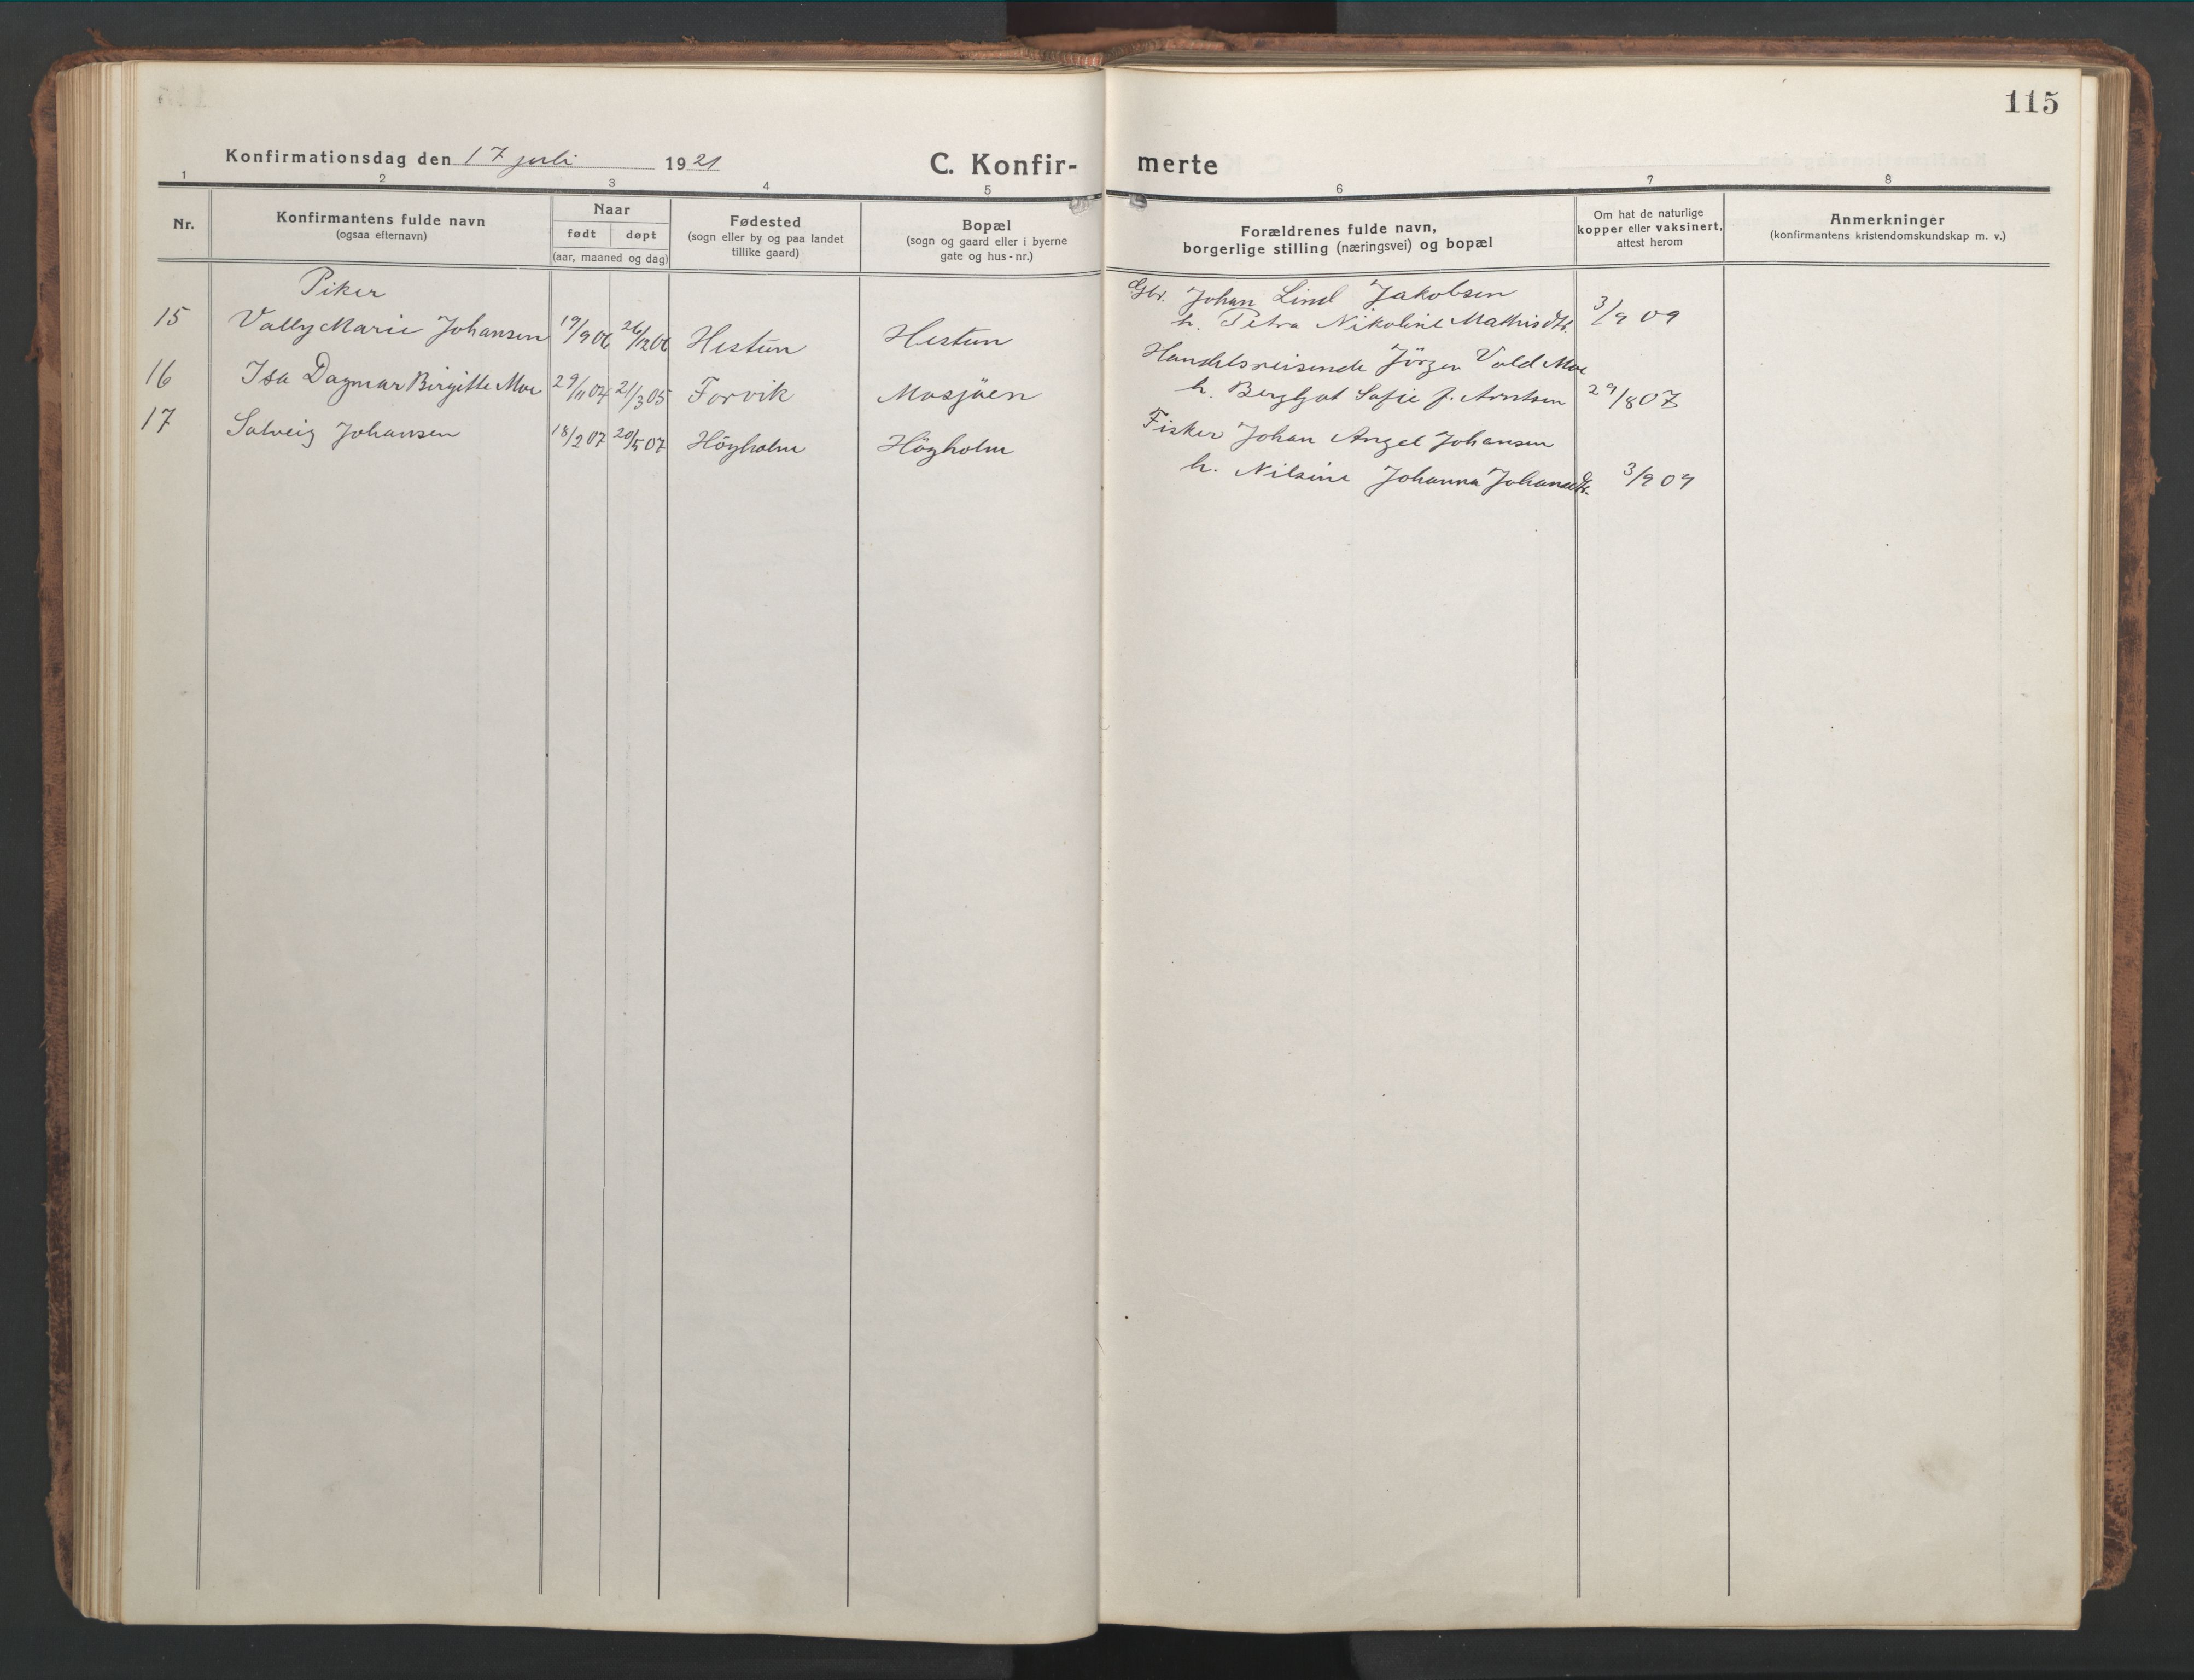 115
Konfirmationsdag den 17 juli 1921
C. Konfir- merte
1 2 3 4 5 6 7 8
Nr.
Konfirmantens fulde navn
(ogsaa efternavn)
Naar
født døpt
(aar, maaned og dag)
Fødested
(sogn eller by og paa landet
tillike gaard)
Bopæl
(sogn og gaard eller i byerne
gate og hus-nr.)
Forældrenes fulde navn,
borgerlige stilling (næringsvei) og bopæl
Om hat de naturlige
kopper eller vaksinert,
attest herom
Anmerkninger
(konfirmantens kristendomskundskap m. v.)
Piker
15 Vally Marie Johansen 19/9 06 26/12 06 Hestun Hestun Gbr. Johan Lind Jakobsen
h. Petra Nikoline Mathisdtr. 3/9 09
16 Isa Dagmar Birgitte Moe 29/11 04 21/3 05 Forvik Mosjöen Handelsreisende Jörgen Vold Moe
h. Bergljot Sofie f. Arntsen 29/8 07
17 Solveig Johansen 18/2 07 20/5 07 Högholm Högholm Fisker Johan Angel Johansen
h. Nilsine Johanna Johansdtr. 3/9 09